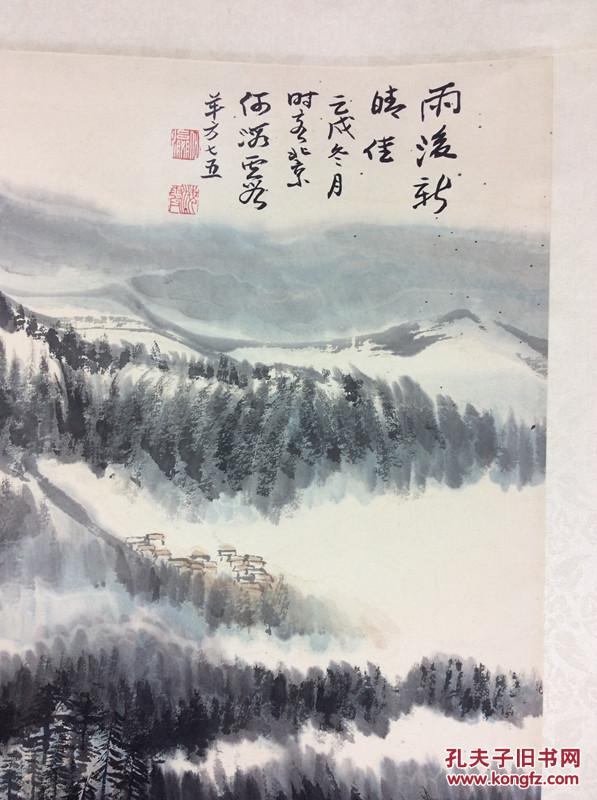 雨後新
晴佳
壬戌冬月
时客北京
何海霞
年方七五
孔夫子旧书网
www.kongfz.com